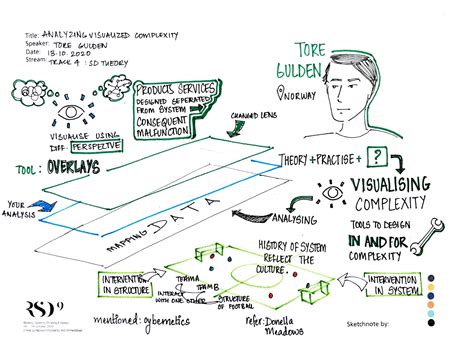 Title: ANALYZING VISUALIZED COMPLEXITY
Speaker: TORE GULDEN
Date: 18.10.2020
Stream: TRACK 4 : SD THEORY
TORE
GULDEN
NORWAY
PRODUCTS SERVICES
DESIGNED SEPERATED
FROM SYSTEM
CONSEQUENT
MALFUNCTION
VISUALISE USING
DIFF. PERSPECTIVE
CHANGED LENS
TOOL: OVERLAYS
THEORY + PRACTISE + ?
YOUR
ANALYSIS
MAPPING DATA
ANALYSING
VISUALISING
COMPLEXITY
TOOLS TO DESIGN
IN AND FOR
COMPLEXITY
HISTORY OF SYSTEM
REFLECT THE
CULTURE.
INTERVENTION
IN STRUCTURE
TEAM A
TEAM B
INTERACT
WITH ONE OTHER
STRUCTURE
OF FOOTBALL
INTERVENTION
IN SYSTEM
RSD9
mentioned: cybernetics
refer: Donella
Meadows
Sketchnote by: